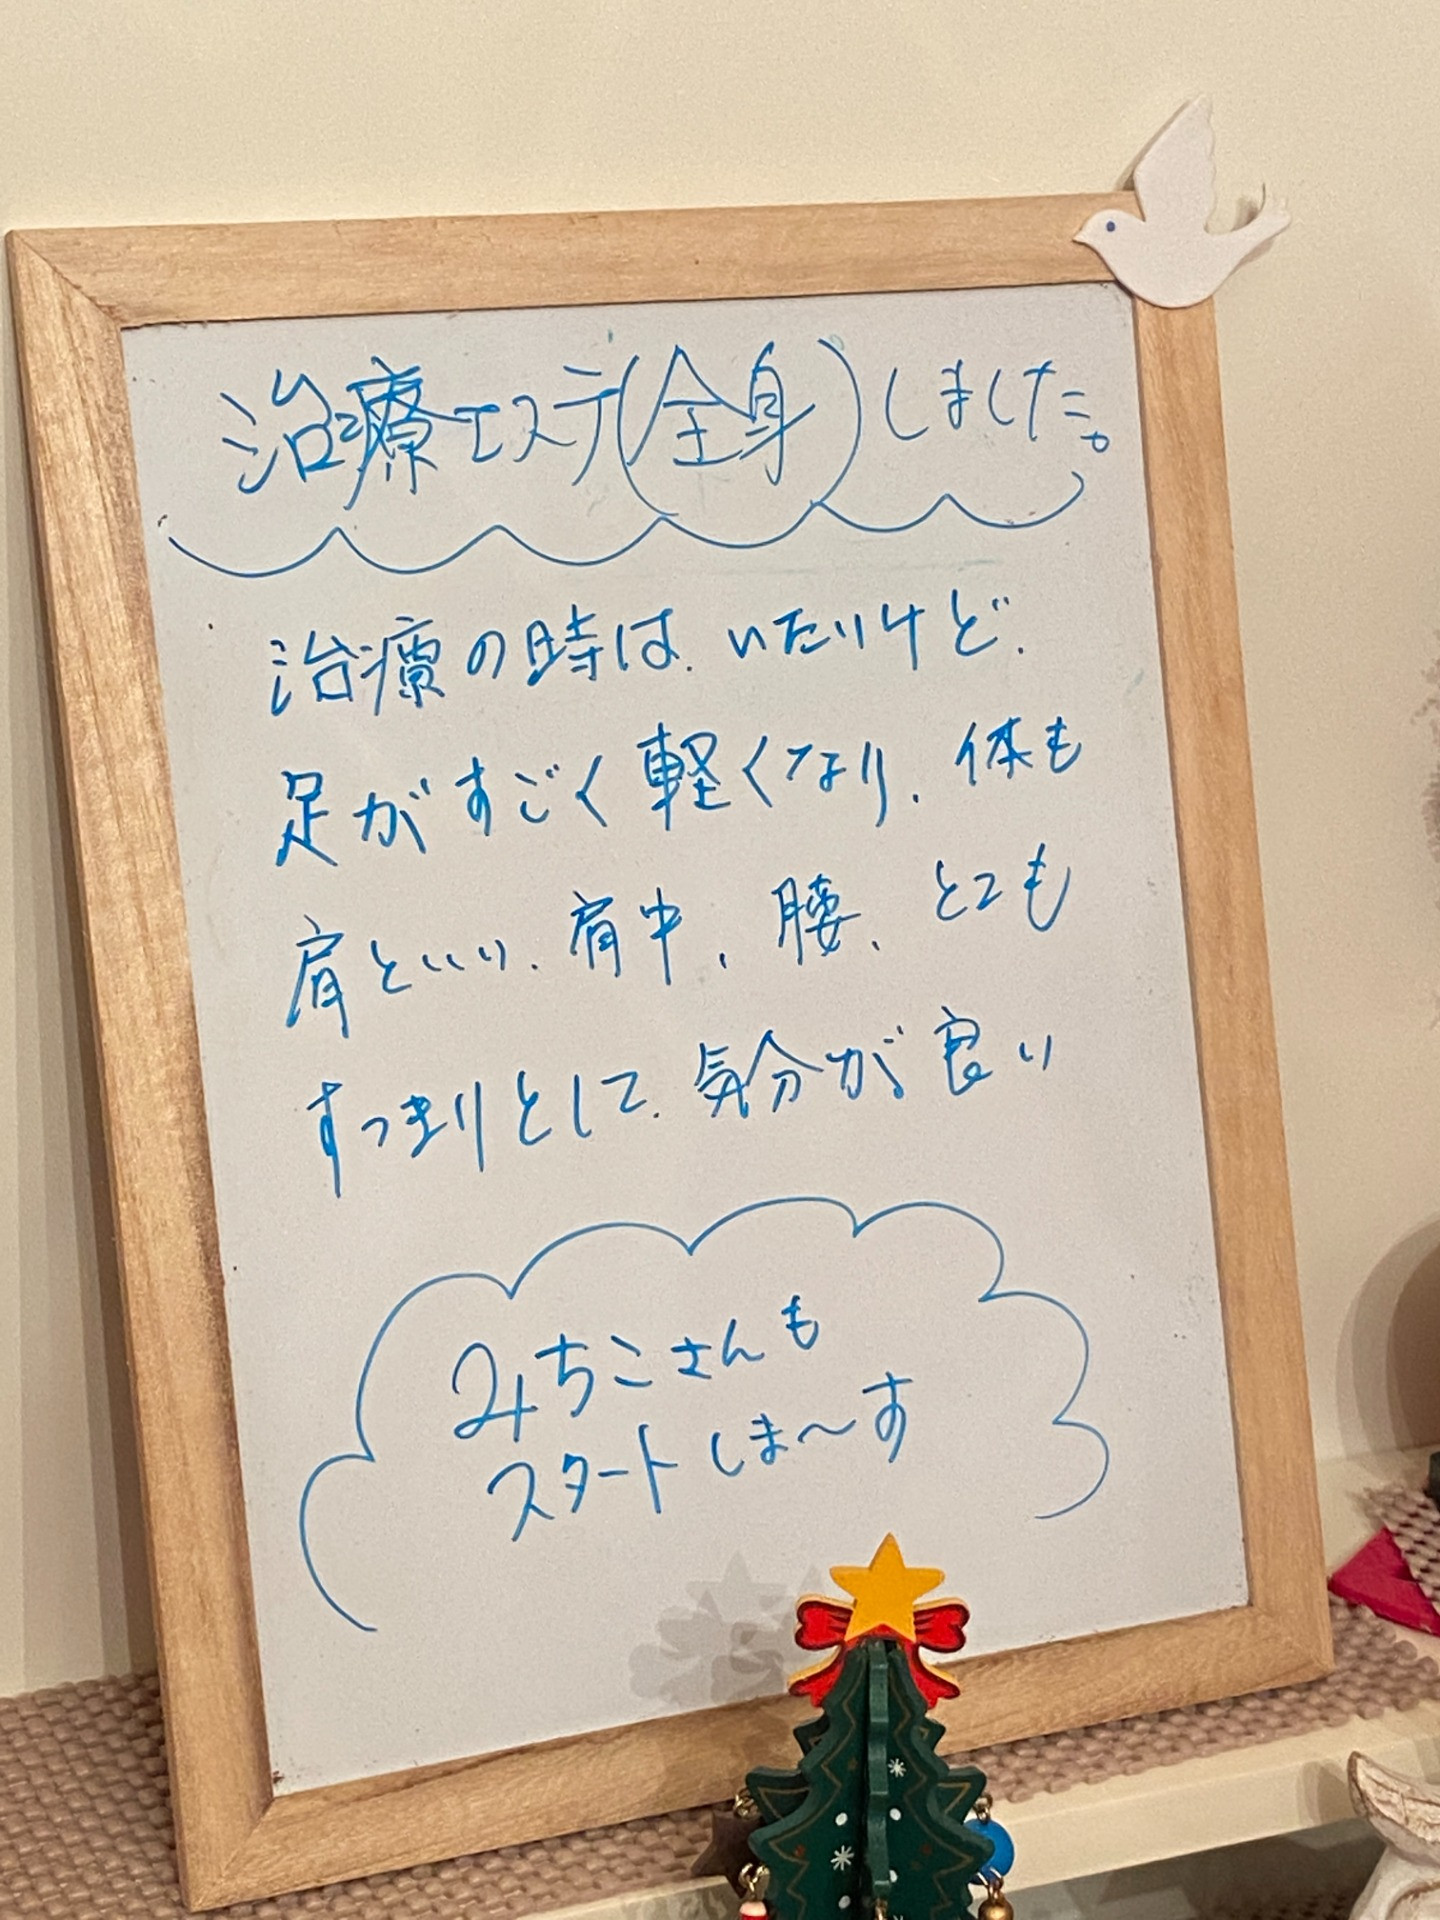 治療エステ(全身)しました。
治療の時は、いたいけど、
足がすごく軽くなり、体も
肩といい、肩中、腰、とても
すっきりとして、気分が良い
みちこさんも
スタートしま〜す